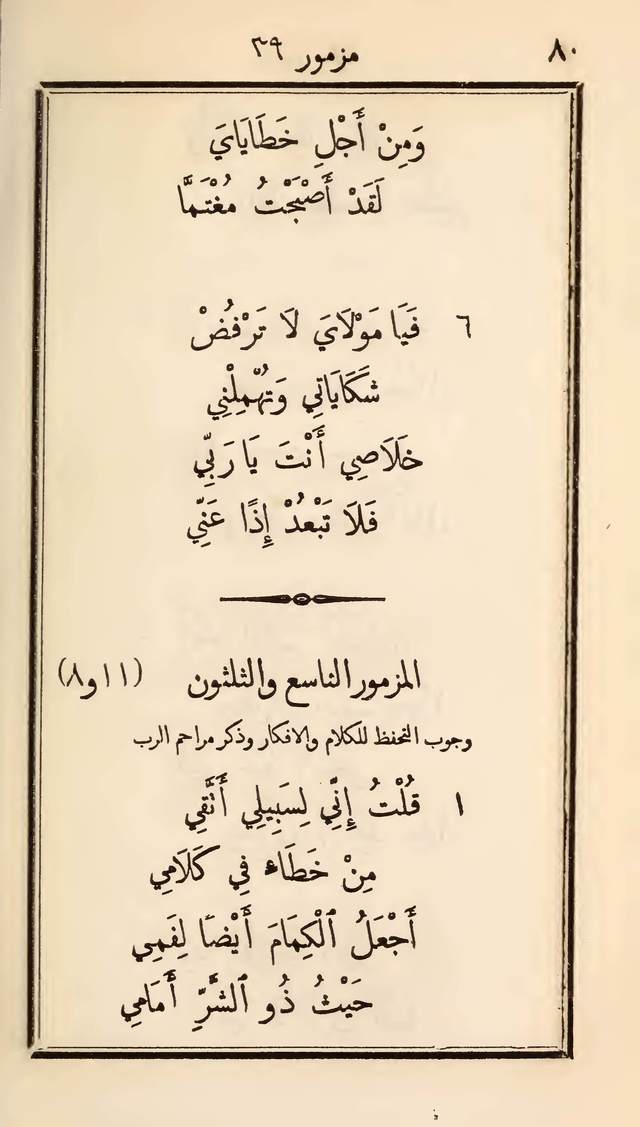 ٨٠ مزمور ٣٩
وَمِنْ أَجْلِ خَطَايَايَ
لَقَدْ أَصْبَحْتُ مُغْتَمَّا
٦ فَيَا مَوْلَايَ لَا تَرْفُضْ
شَكَايَاتِي وَتُهْمِلْنِي
خَلَاصِي أَنْتَ يَا رَبِّي
فَلَا تَبْعُدْ إِذًا عَنِّي
المزمور التاسع والثلثون (١١ و٨)
وجوب التحفظ للكلام والافكار وذكر مراحم الرب
١ قُلْتُ إِنِّي لِسَبِيلِي أَتَّقِي
مِنْ خَطَاءٍ فِي كَلَامِي
أَجْعَلُ ٱلْكِمَامَ أَيْضًا لِفَمِي
حَيْثُ ذُو ٱلشَّرِّ أَمَامِي